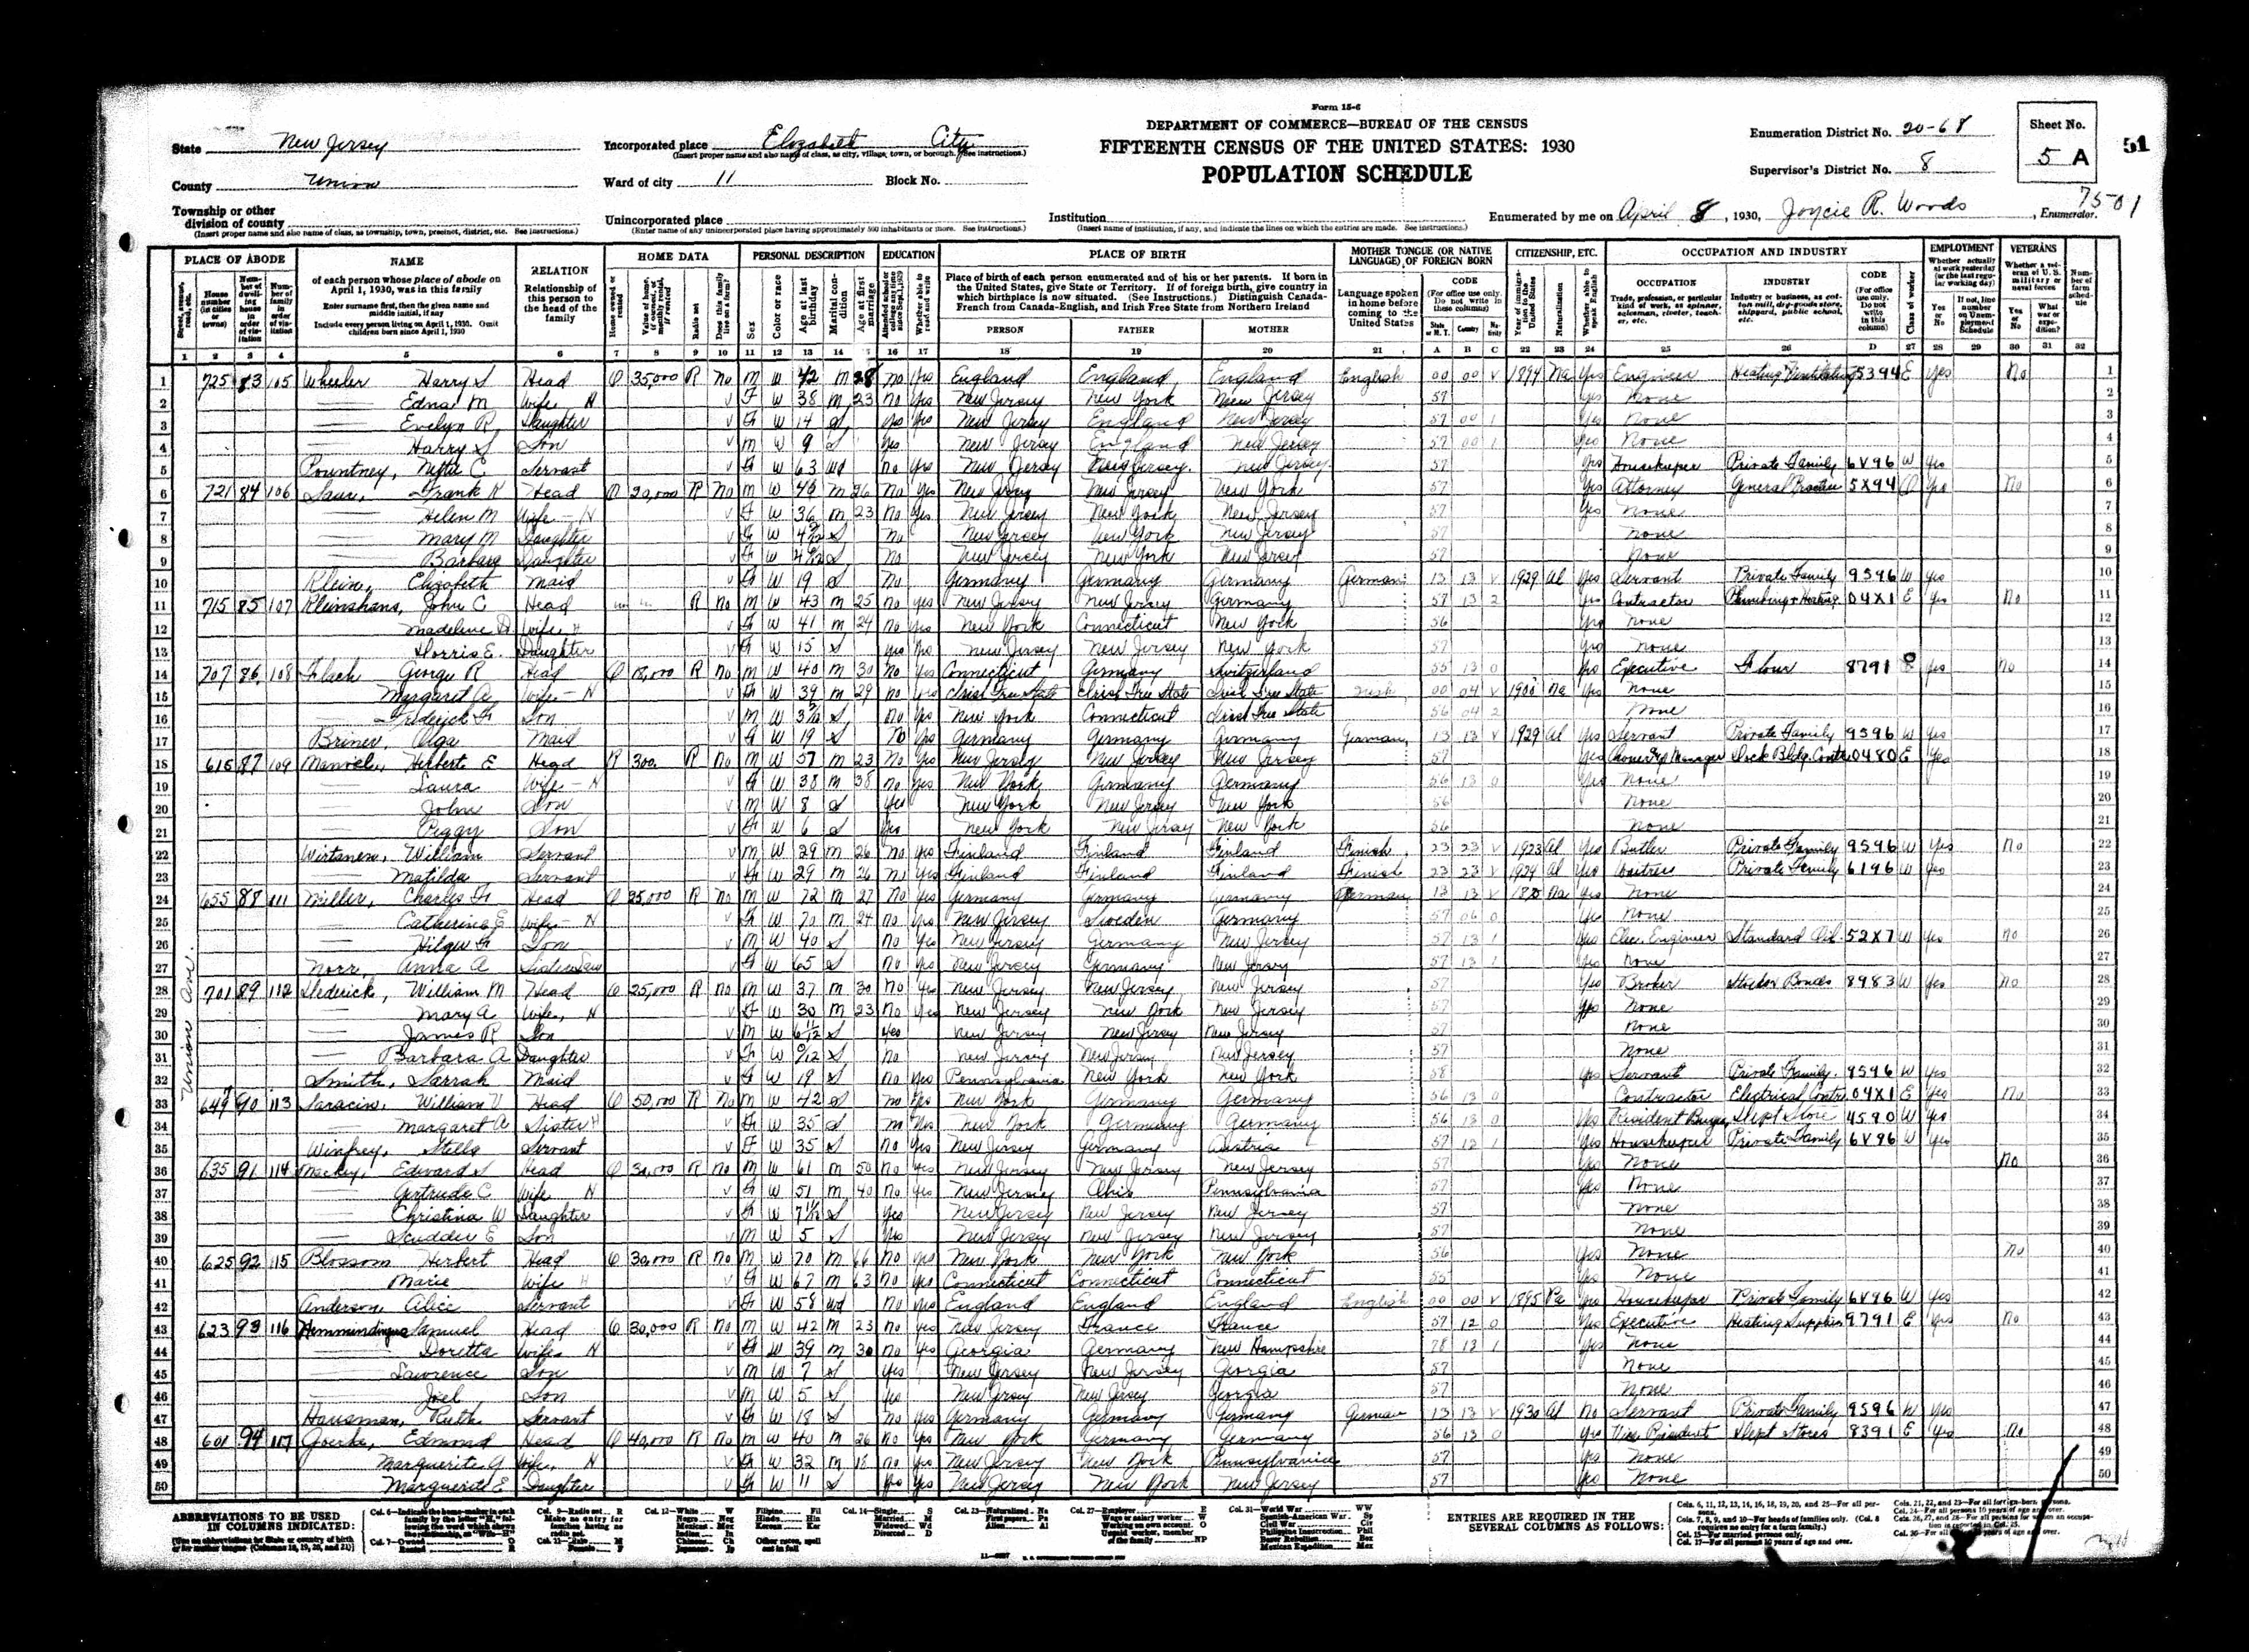 Form 15-6
DEPARTMENT OF COMMERCE—BUREAU OF THE CENSUS
FIFTEENTH CENSUS OF THE UNITED STATES: 1930
POPULATION SCHEDULE
State New Jersey
County Union
Township or other division of county
(Insert proper name and also name of class, as township, town, precinct, district, etc. See instructions.)
Incorporated place Elizabeth City
(Insert proper name and also name of class, as city, village, town, or borough. See instructions.)
Ward of city 11 Block No.
Unincorporated place
(Enter name of any unincorporated place having approximately 500 inhabitants or more. See instructions.)
Institution
(Insert name of institution, if any, and indicate the lines on which the entries are made. See instructions.)
Enumeration District No. 20-68
Supervisor's District No. 8
Sheet No. 5 A
51
7501
Enumerated by me on April 8, 1930, Joycie R. Woods, Enumerator.
PLACE OF ABODE
NAME
of each person whose place of abode on April 1, 1930, was in this family
Enter surname first, then the given name and middle initial, if any
Include every person living on April 1, 1930. Omit children born since April 1, 1930
RELATION
Relationship of this person to the head of the family
HOME DATA
PERSONAL DESCRIPTION
EDUCATION
PLACE OF BIRTH
Place of birth of each person enumerated and of his or her parents. If born in the United States, give State or Territory. If of foreign birth, give country in which birthplace is now situated. (See Instructions.) Distinguish Canada-French from Canada-English, and Irish Free State from Northern Ireland
PERSON FATHER MOTHER
MOTHER TONGUE (OR NATIVE LANGUAGE) OF FOREIGN BORN
Language spoken in home before coming to the United States
CODE
(For office use only. Do not write in these columns)
CITIZENSHIP, ETC.
OCCUPATION AND INDUSTRY
OCCUPATION
INDUSTRY
EMPLOYMENT
VETERANS
Union Ave.
1 725 83 105 Wheeler Harry S Head O 35,000 R No M W 42 M 28 No Yes England England England English 00 00 V 1894 Na Yes Engineer Heating Ventilating 5394 E Yes No
2 Edna M Wife H F W 38 M 23 No Yes New Jersey New York New Jersey 57 Yes None
3 Evelyn R. Daughter F W 14 S Yes Yes New Jersey England New Jersey 57 00 1 Yes None
4 Harry S Son M W 9 S Yes New Jersey England New Jersey 57 00 1 Yes None
5 Pountney, C. Servant F W 63 Wd No Yes New Jersey New Jersey New Jersey 57 Yes Housekeeper Private Family 6V96 W Yes
6 721 84 106 Frank K Head O 20,000 R No M W 46 M 26 No Yes New Jersey New Jersey New York 57 Yes Attorney General Practice 5X94 O Yes No
7 Helen M Wife H F W 36 M 23 No Yes New Jersey New York New Jersey 57 Yes None
8 Mary M Daughter F W S No New Jersey New York New Jersey 57 None
9 Barbara Daughter F W S No New Jersey New York New Jersey 57 None
10 Klein, Elizabeth Maid F W 19 S No Germany Germany Germany German 13 13 V 1929 Al Yes Servant Private Family 9596 W Yes
11 715 85 107 Kleinshans, John C Head R No M W 43 M 25 No Yes New Jersey New Jersey Germany 57 13 2 Yes Contractor Plumbing & Heating 04X1 E Yes No
12 Madeline Wife H F W 41 M 24 No Yes New York Connecticut New York 56 Yes None
13 Dorris E. Daughter F W 15 S Yes No New Jersey New Jersey New York 57 Yes None
14 707 86 108 Flach George R Head O 18,000 R No M W 40 M 30 No Yes Connecticut Germany Switzerland 55 13 0 Yes Executive Flour 8791 Yes No
15 Margaret A Wife H F W 39 M 29 No Yes Irish Free State Irish Free State Irish Free State Irish 00 04 V 1900 Na Yes None
16 Frederick Son M W S No Yes New York Connecticut Irish Free State 56 04 2 None
17 Briner, Olga Maid F W 19 S No Yes Germany Germany Germany German 13 13 V 1929 Al Yes Servant Private Family 9596 W Yes
18 615 87 109 Herbert E Head R 300 R No M W 57 M 23 No Yes New Jersey New Jersey New Jersey 57 Yes Manager Dock Bldg. Contr. 0480 E Yes
19 Laura Wife H F W 38 M 38 No Yes New York Germany Germany 56 13 0 Yes None
20 John Son M W 8 S Yes New York New Jersey New York 56 None
21 Peggy Son F W 6 S Yes New York New Jersey New York 56 None
22 Wirtanen, William Servant M W 29 M 26 No Yes Finland Finland Finland Finish 23 23 V 1923 Al Yes Butler Private Family 9596 W Yes No
23 Matilda Servant F W 29 M 26 No Yes Finland Finland Finland Finish 23 23 V 1924 Al Yes Waitress Private Family 6196 W Yes
24 655 88 111 Miller, Charles Head O 25,000 R No M W 72 M 27 No Yes Germany Germany Germany German 13 13 V Na Yes None
25 Catherine E Wife H F W 70 M 24 No Yes New Jersey Sweden Germany 57 06 0 Yes None
26 Son M W 40 S No Yes New Jersey Germany New Jersey 57 13 1 Yes Elec. Engineer Standard Oil 52X7 W Yes No
27 Norr, Anna A SisterLaw F W 65 S No Yes New Jersey Germany New Jersey 57 13 1 Yes None
28 701 89 112 Dederick, William M Head O 25,000 R No M W 37 M 30 No Yes New Jersey New Jersey New Jersey 57 Yes Broker Stocks Bonds 8983 W Yes No
29 Mary A Wife, H F W 30 M 23 No Yes New Jersey New York New Jersey 57 Yes None
30 James R Son M W 6 11/12 S Yes New Jersey New Jersey New Jersey 57 None
31 Barbara A Daughter F W S No New Jersey New Jersey New Jersey 57 None
32 Smith, Sarrah Maid F W 19 S No Yes Pennsylvania New York New York 58 Yes Servant Private Family 9596 W Yes
33 649 90 113 Saracin, William V Head O 50,000 R No M W 42 S No Yes New York Germany Germany 56 13 0 Contractor Electrical Contr. 04X1 E Yes No
34 Margaret A Sister H F W 35 S No Yes New York Germany Germany 56 13 0 Yes Resident Buyer Dept Store 4590 W Yes
35 Winfrey, Stella Servant F W 35 S No Yes New Jersey Germany Austria 57 13 1 Yes Housekeeper Private Family 6V96 W Yes
36 635 91 114 Mackey, Edward S Head O 30,000 R No M W 61 M 50 No Yes New Jersey New Jersey New Jersey 57 Yes None No
37 Gertrude C Wife H F W 51 M 40 No Yes New Jersey Ohio Pennsylvania 57 Yes None
38 Christina W Daughter F W 7 11/12 S Yes New Jersey New Jersey New Jersey 57 None
39 Scudder E Son M W 5 S Yes New Jersey New Jersey New Jersey 57 None
40 625 92 115 Blossom Herbert Head O 30,000 R No M W 70 M 66 No Yes New York New York New York 56 Yes None No
41 Marie Wife H F W 67 M 63 No Yes Connecticut Connecticut Connecticut 55 Yes None
42 Anderson, Alice Servant F W 58 Wd No Yes England England England English 00 00 V 1895 Pa Yes Housekeeper Private Family 6V96 W Yes
43 623 93 116 Samuel Head O 30,000 R No M W 42 M 23 No Yes New Jersey France France 57 12 0 Yes Executive Heating Supplies 9791 E Yes No
44 Doretta Wife H F W 39 M 30 No Yes Georgia Germany New Hampshire 78 13 1 Yes None
45 Lawrence Son M W 7 S Yes New Jersey New Jersey Georgia 57 None
46 Joel Son M W 5 S Yes New Jersey New Jersey Georgia 57 None
47 Hausman, Ruth Servant F W 18 S No Yes Germany Germany Germany German 13 13 V 1930 Al No Servant Private Family 9596 W Yes
48 601 94 117 Goerke, Edmond Head O 40,000 R No M W 40 M 26 No Yes New York Germany Germany 56 13 0 Yes Vice President Dept Stores 8391 E Yes No
49 Marguerite G Wife, H F W 32 M 18 No Yes New Jersey New York Pennsylvania 57 Yes None
50 Marguerite E Daughter F W 11 S Yes Yes New Jersey New York New Jersey 57 Yes None
ABBREVIATIONS TO BE USED IN COLUMNS INDICATED:
ENTRIES ARE REQUIRED IN THE SEVERAL COLUMNS AS FOLLOWS: